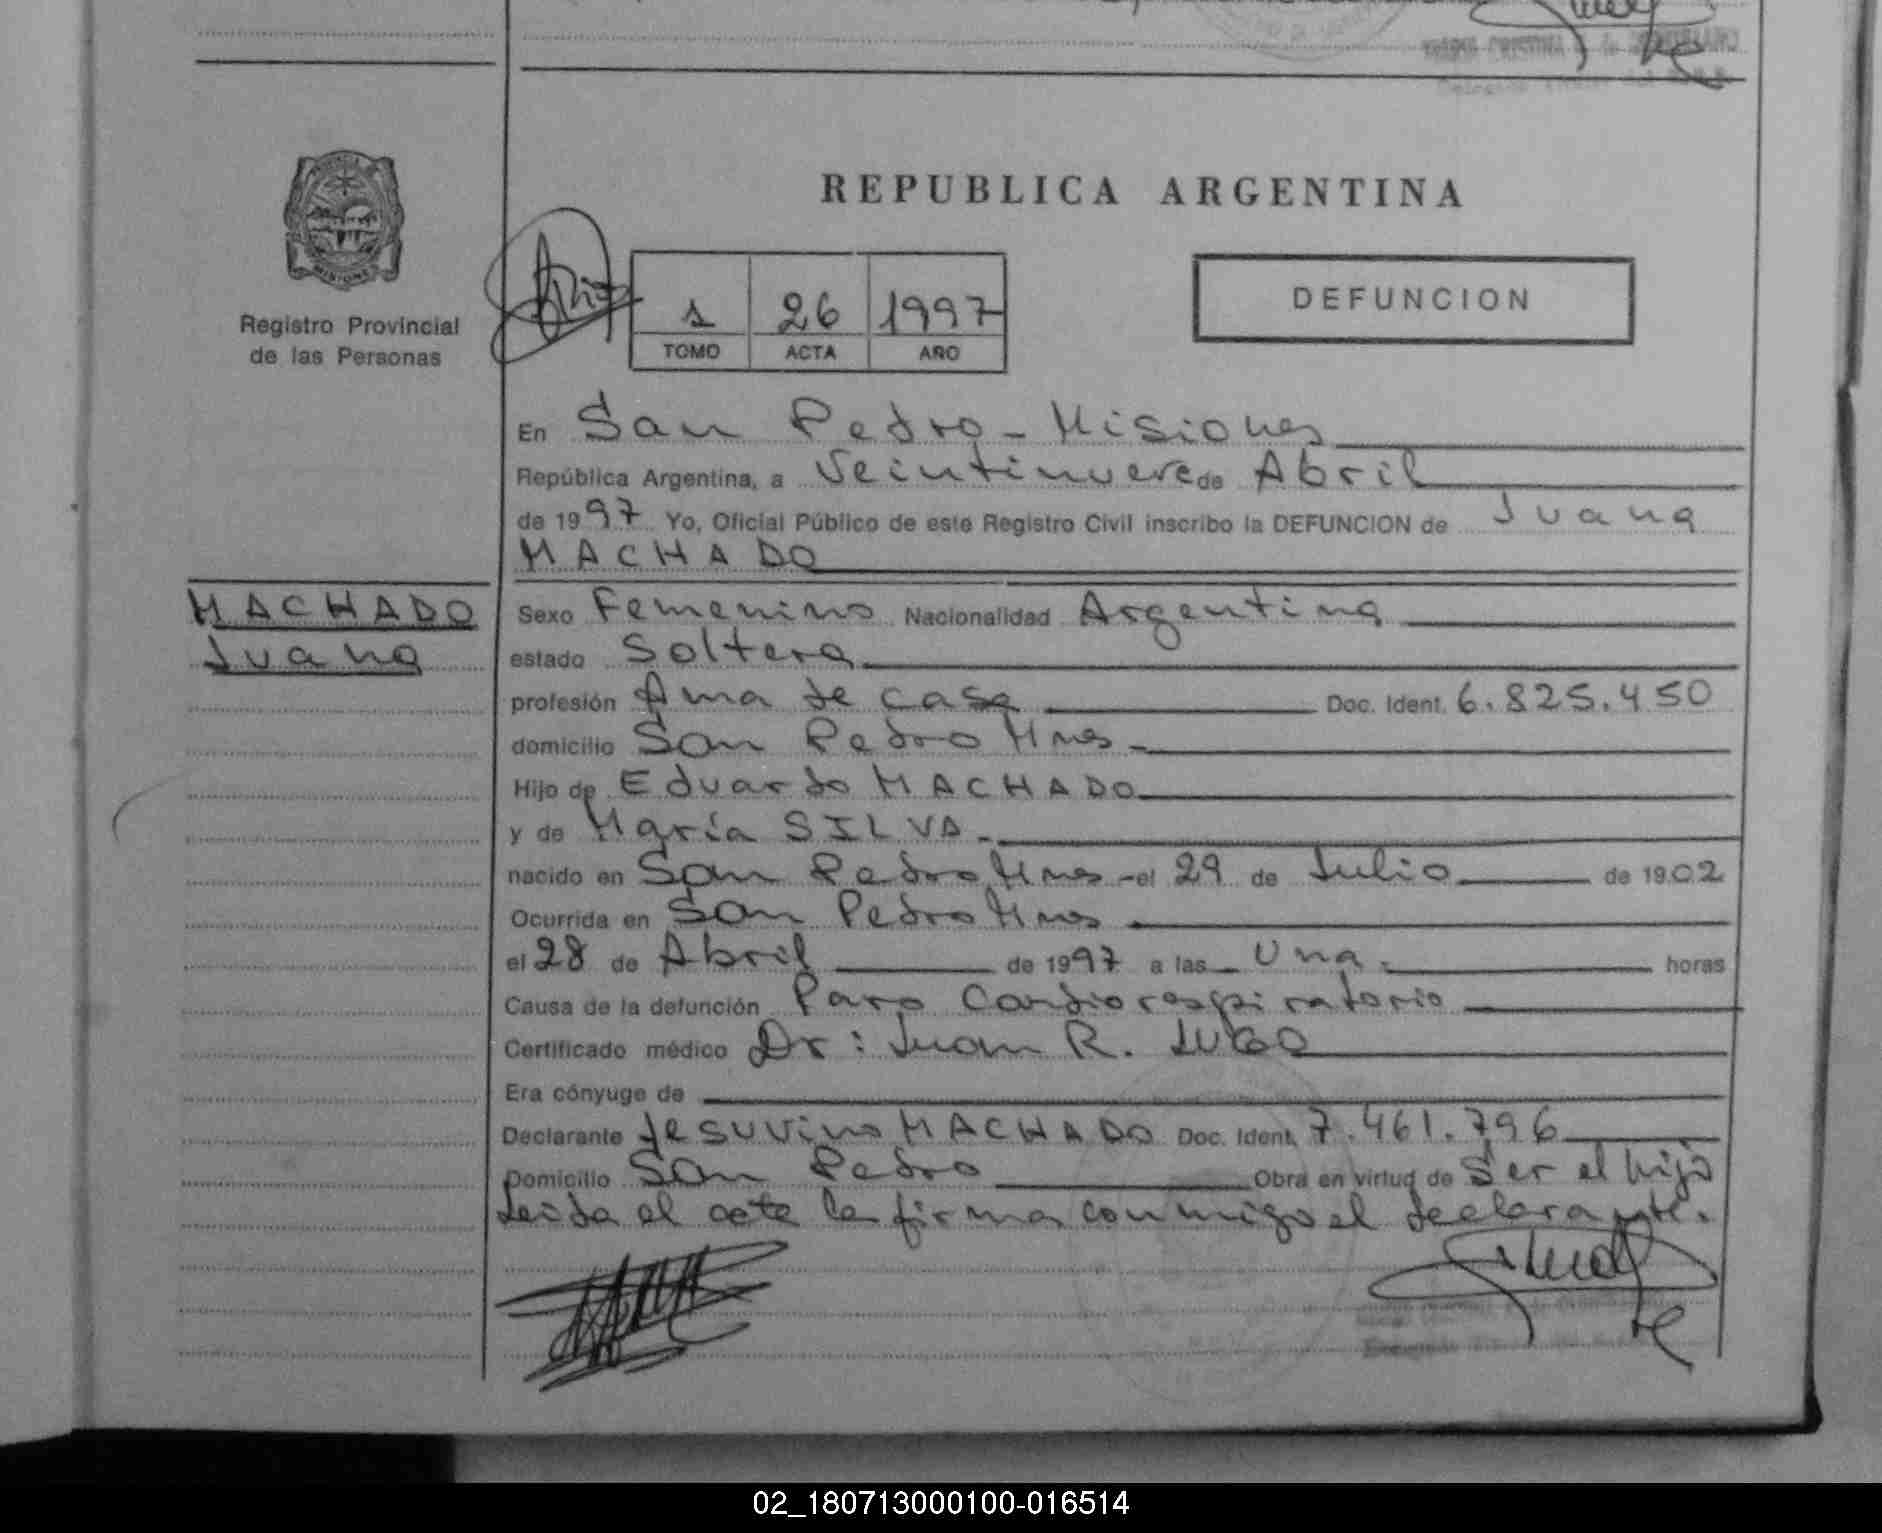 REPUBLICA ARGENTINA
PROVINCIA
MISIONES
Registro Provincial
de las Personas
1 26 1997
TOMO ACTA AÑO
DEFUNCION
En San Pedro - Misiones
República Argentina, a Veintinueve de Abril
de 1997 Yo, Oficial Público de este Registro Civil inscribo la DEFUNCION de Juana
MACHADO
MACHADO
Juana
Sexo Femenino Nacionalidad Argentina
estado Soltera
profesión Ama de casa Doc. Ident. 6.825.450
domicilio San Pedro Mnes -
Hijo de Eduardo MACHADO
y de María SILVA -
nacido en San Pedro Mnes - el 29 de Julio de 1902
Ocurrida en San Pedro Mnes
el 28 de Abril de 1997 a las Una. horas
Causa de la defunción Paro Cardiorespiratorio
Certificado médico Dr: Juan R. LUGO
Era cónyuge de
Declarante Jesuvino MACHADO Doc. Ident. 7.461.796
Domicilio San Pedro Obra en virtud de Ser el hijo
Leida el acta la firma conmigo el declarante.
02_180713000100-016514